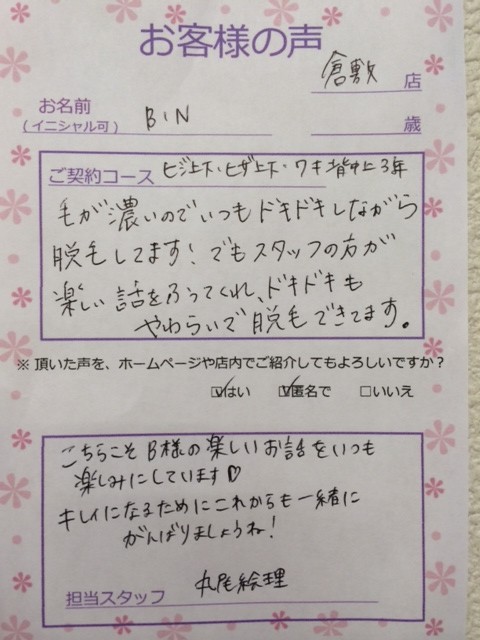 お客様の声
倉敷 店
お名前
(イニシャル可) B・N 歳
ご契約コース ヒジ上下・ヒザ上下・ワキ 背中上 3年
毛が濃いのでいつもドキドキしながら
脱毛してます！でもスタッフの方が
楽しい話をふってくれ、ドキドキも
やわらいで脱毛できてます。
※頂いた声を、ホームページや店内でご紹介してもよろしいですか？
☑はい ☑匿名で □いいえ
こちらこそB様の楽しいお話をいつも
楽しみにしています♡
キレイになるためにこれからも一緒に
がんばりましょうね！
担当スタッフ 丸尾絵理